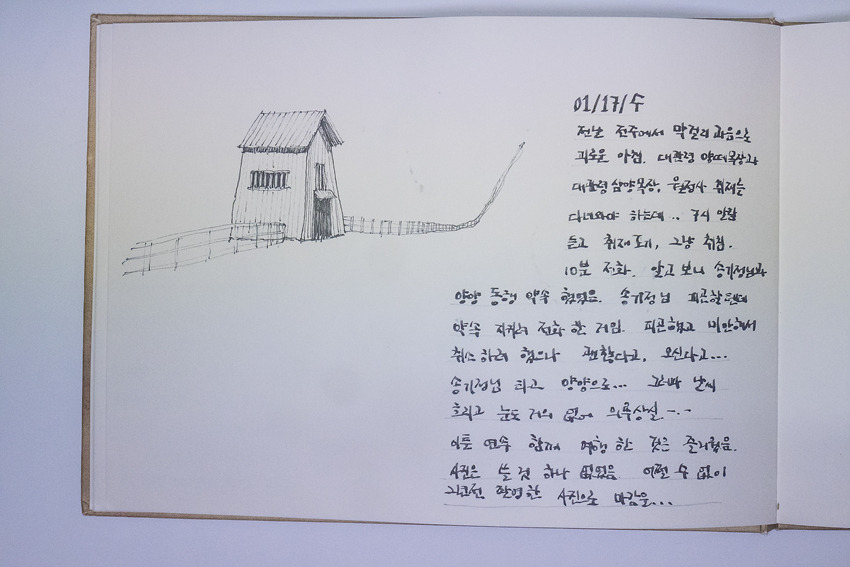 01/17/수
전날 전주에서 막걸리 과음으로
괴로운 아침. 대관령 양떼목장과
대관령 삼양목장, 월정사 취재를
다녀와야 하는데.. 7시 알람
듣고 취재 포기, 그냥 취침.
10분 전화. 알고 보니 송기정님과
양양 동행 약속 했었음. 송기정님 피곤할텐데
약속 지키려 전화 한 거임. 피곤하고 미안해서
취소 하려 했으나 괜찮다고, 오신다고...
송기정님 타고 양양으로... 그러나 날씨
흐리고 눈도 거의 없어 의욕상실 -.-
이틀 연속 함께 여행 한 것은 즐거웠음.
사진은 쓸 것 하나 없었음. 어쩔 수 없이
촬영한 사진으로 마감을...